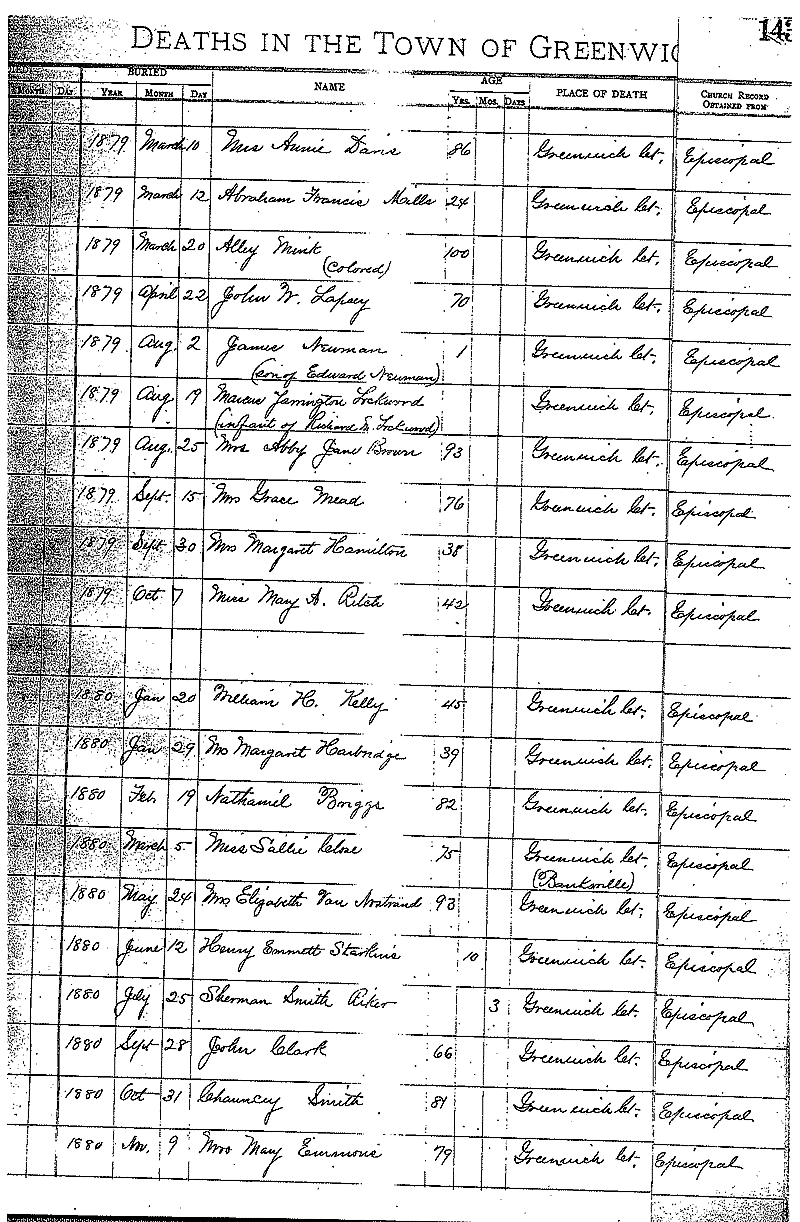 143
DEATHS IN THE TOWN OF GREENWIC
BURIED AGE
MONTH DAY YEAR MONTH DAY NAME YRS. MOS. DAYS PLACE OF DEATH CHURCH RECORD OBTAINED FROM
1879 March 10 Mrs Annie Davis 86 Greenwich Ct. Episcopal
1879 March 12 Abraham Francis Mills 24 Greenwich Ct. Episcopal
1879 March 20 Alley Mink 100 Greenwich Ct. Episcopal
(Colored)
1879 April 22 John W. Lapsey 70 Greenwich Ct. Episcopal
1879 Aug. 2 James Neuman 1 Greenwich Ct. Episcopal
(son of Edward Neuman)
1879 Aug 19 Marcus Lockwood Greenwich Ct. Episcopal
(infant of Richard Lockwood)
1879 Aug. 25 Mrs Abby Jane Brown 93 Greenwich Ct. Episcopal
1879 Sept. 15 Mrs Grace Mead 76 Greenwich Ct. Episcopal
1879 Sept 30 Mrs Margaret Hamilton 38 Greenwich Ct. Episcopal
1879 Oct 7 Miss Mary A. Ritch 42 Greenwich Ct. Episcopal
1880 Jan 20 William H. Kelly 45 Greenwich Ct. Episcopal
1880 Jan 29 Mrs Margaret Harbridge 39 Greenwich Ct. Episcopal
1880 Feb 19 Nathaniel Briggs 82 Greenwich Ct. Episcopal
1880 March 5 Miss Sallie Close 75 Greenwich Ct. Episcopal
(Banksville)
1880 May 24 Mrs Elizabeth Van Nostrand 93 Greenwich Ct. Episcopal
1880 June 12 Henry Emmett Starkins 10 Greenwich Ct. Episcopal
1880 July 25 Sherman Smith Riker 3 Greenwich Ct. Episcopal
1880 Sept 28 John Clark 66 Greenwich Ct. Episcopal
1880 Oct 31 Chauncey Smith 81 Greenwich Ct. Episcopal
1880 Nov. 9 Mrs Mary Emmons 79 Greenwich Ct. Episcopal